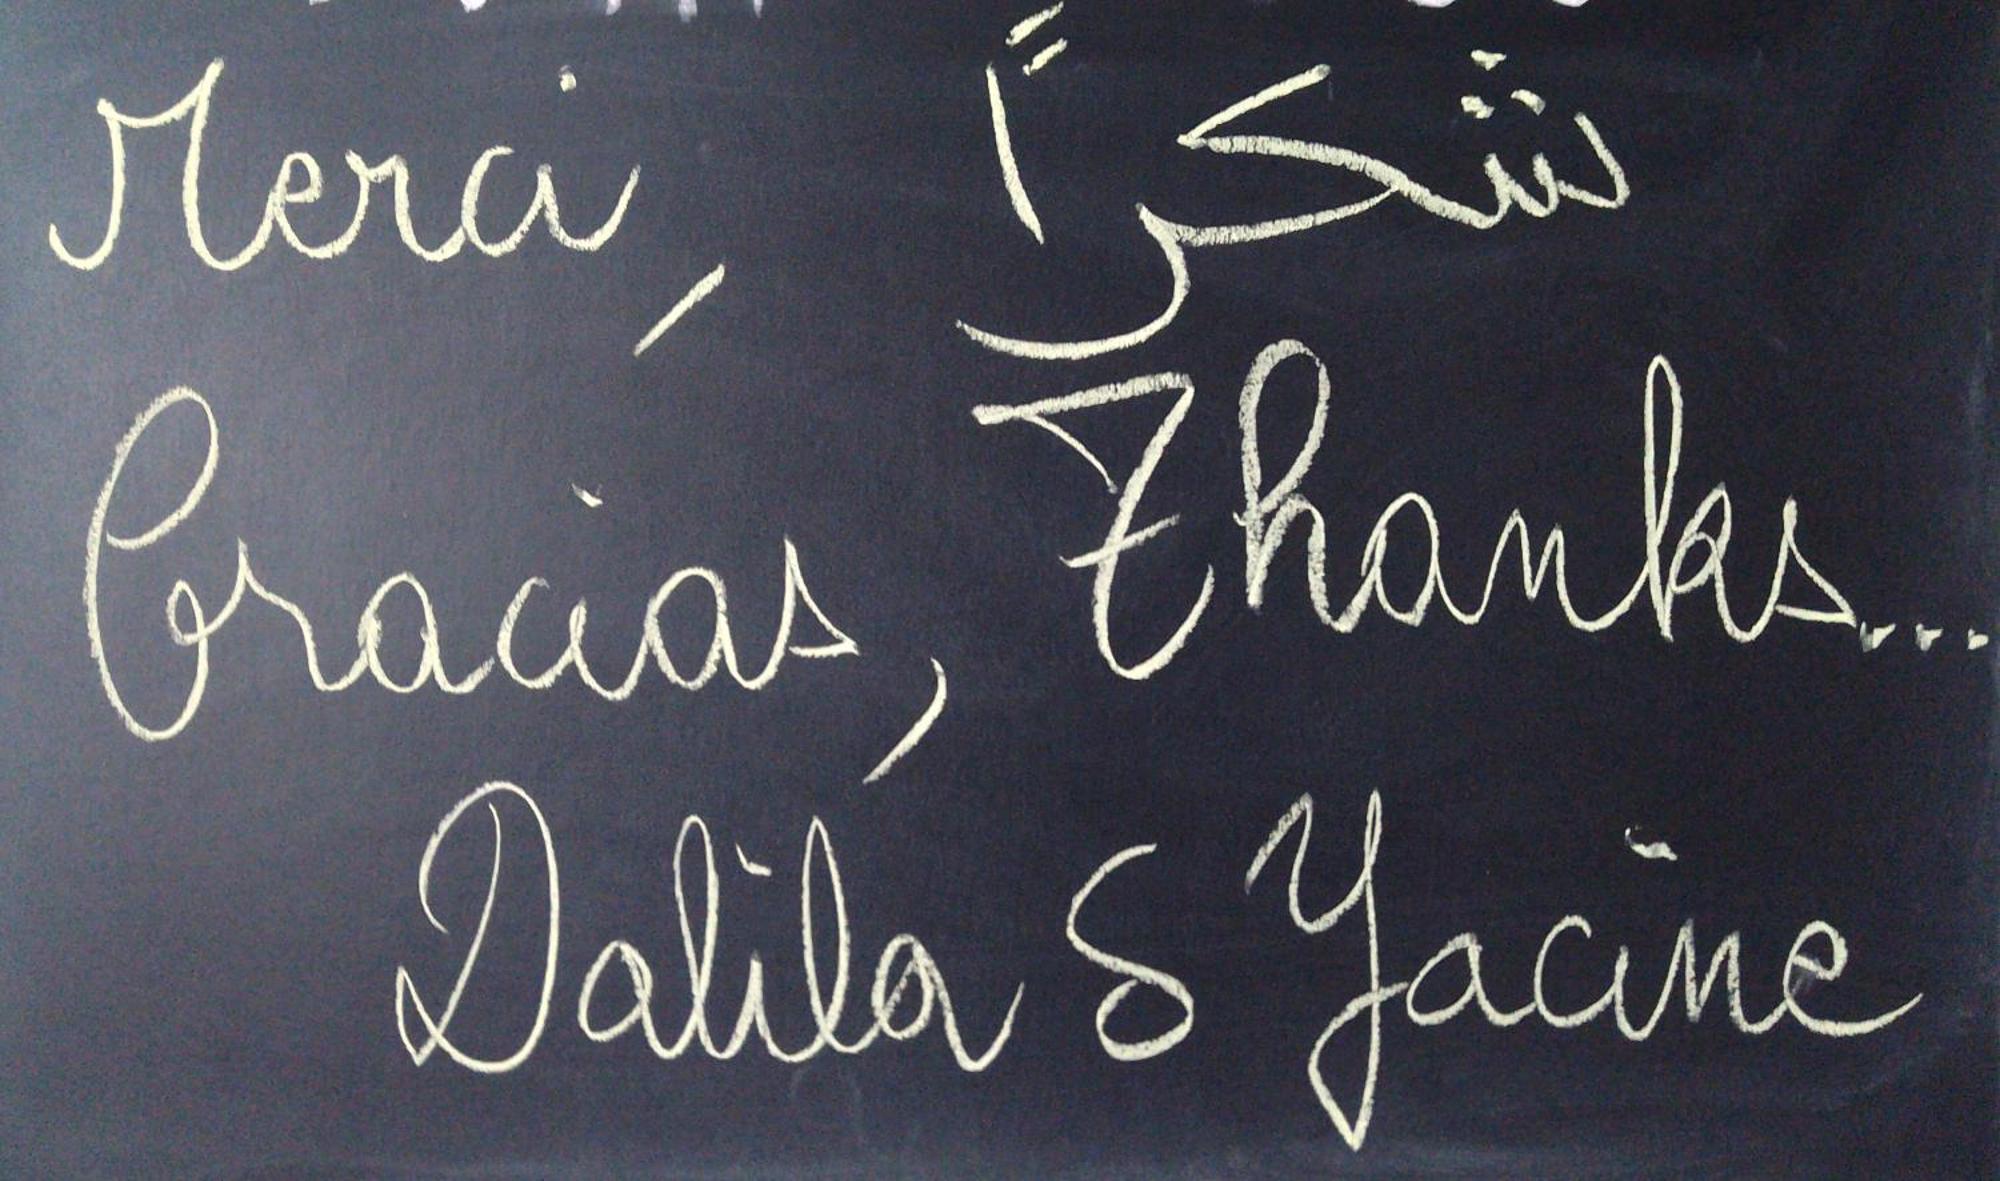 Merci, شكراً
Gracias, Thanks...
Dalila & Yacine